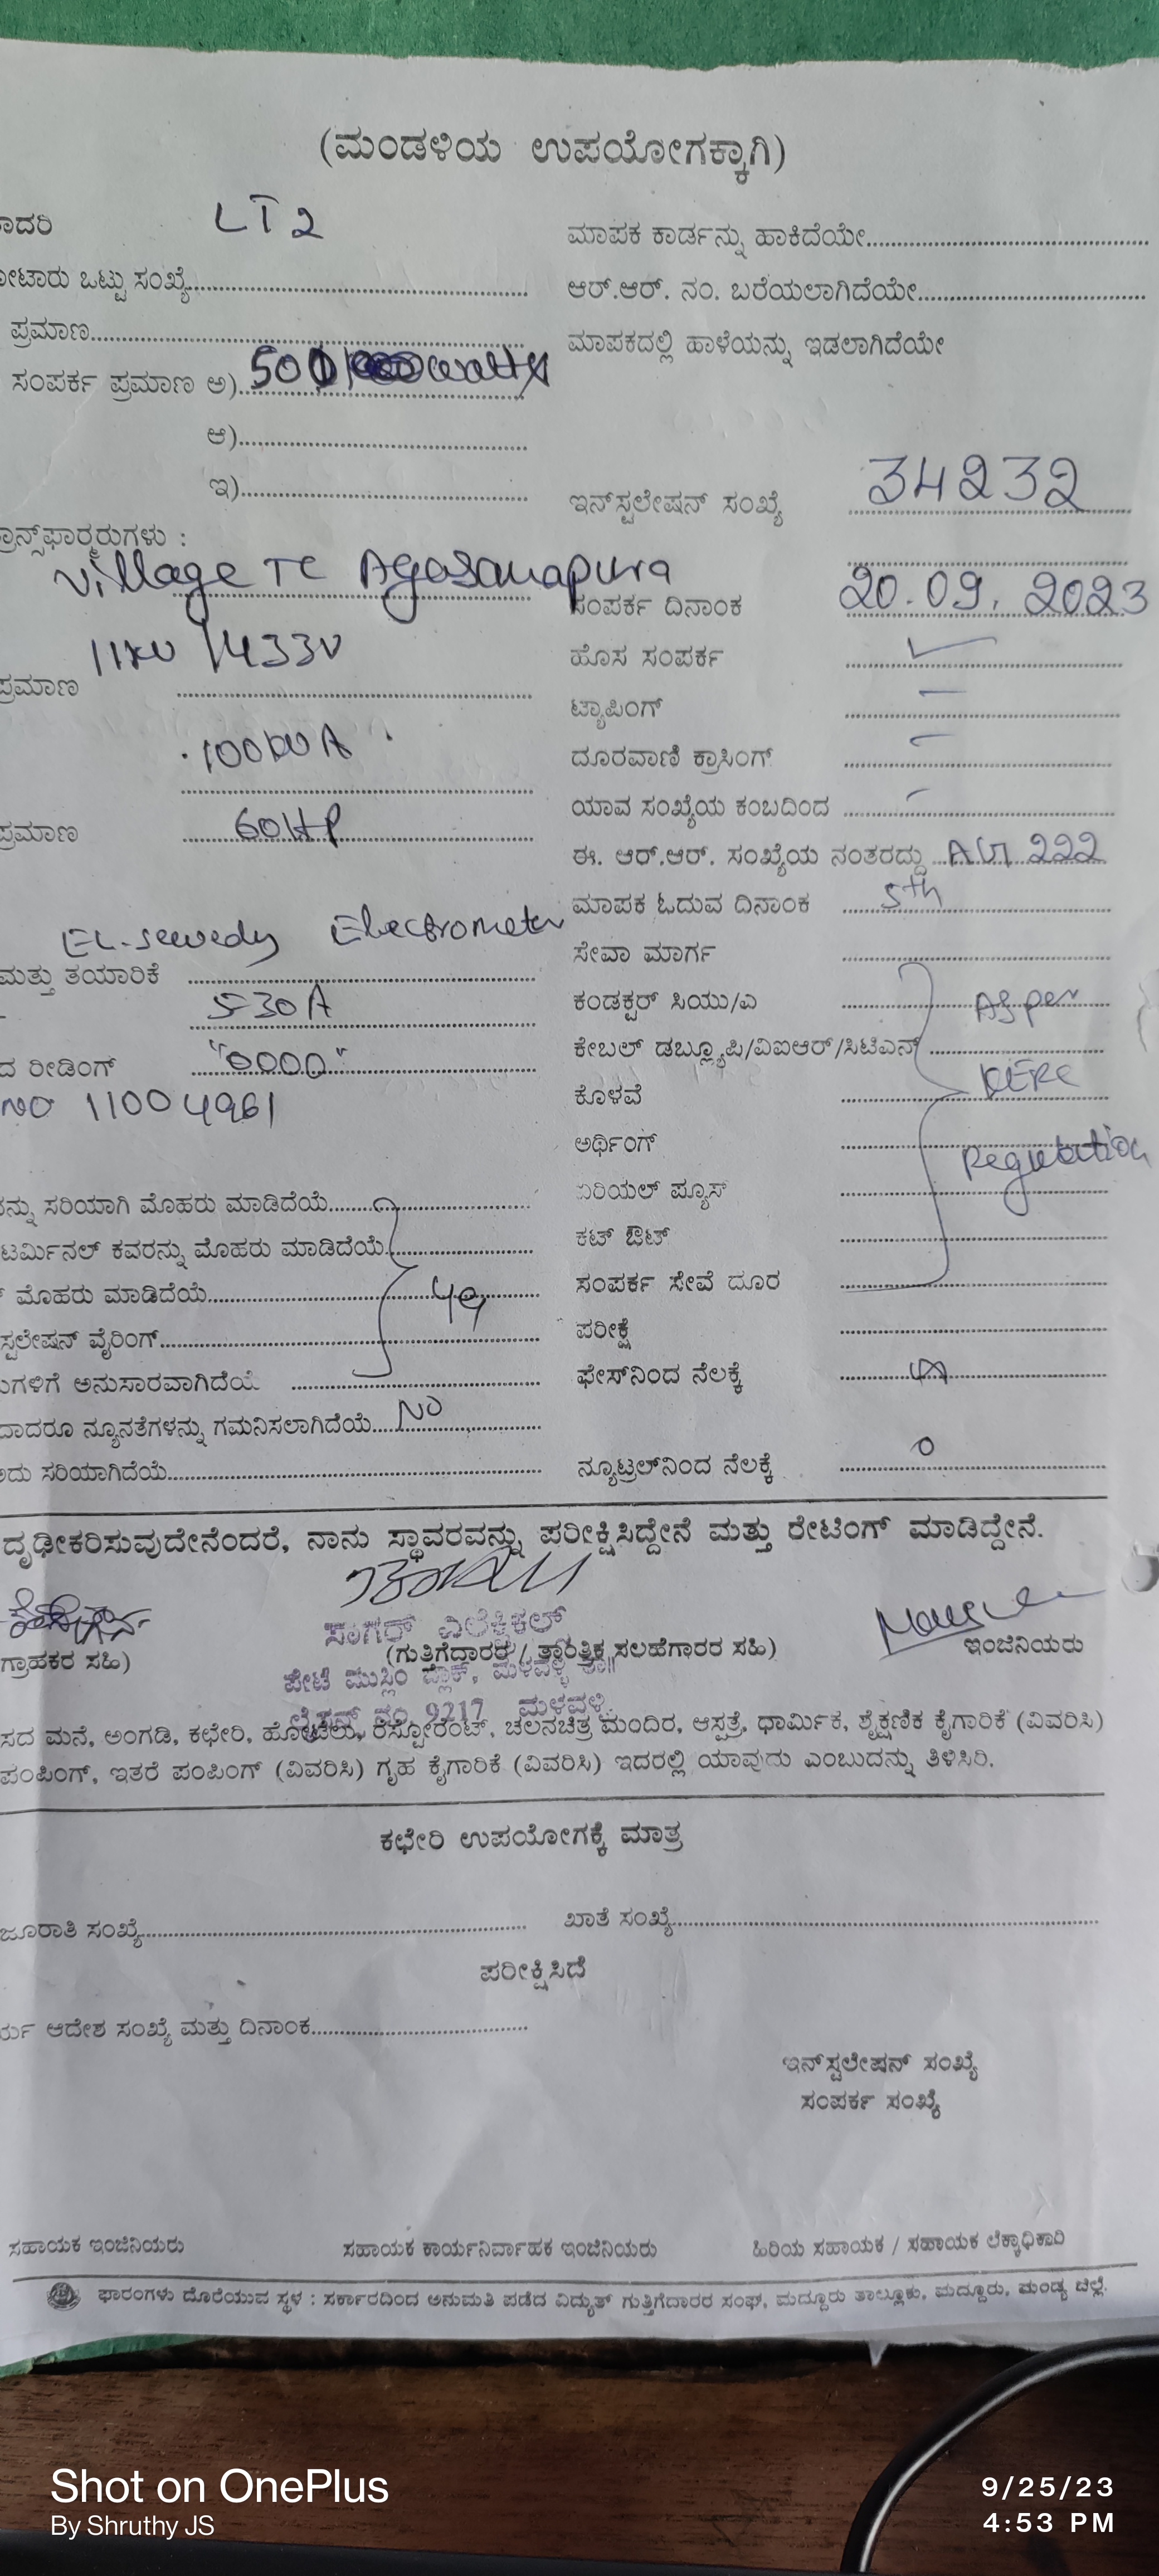 (ಮಂಡಳಿಯ ಉಪಯೋಗಕ್ಕಾಗಿ)
ಾದರಿ LT 2
ಮಾಪಕ ಕಾರ್ಡನ್ನು ಹಾಕಿದೆಯೇ
ೋಟಾರು ಒಟ್ಟು ಸಂಖ್ಯೆ
ಆರ್.ಆರ್. ನಂ. ಬರೆಯಲಾಗಿದೆಯೇ
ಪ್ರಮಾಣ
ಮಾಪಕದಲ್ಲಿ ಹಾಳೆಯನ್ನು ಇಡಲಾಗಿದೆಯೇ
ಸಂಪರ್ಕ ಪ್ರಮಾಣ ಅ)
ಆ)
ಇ)
ಇನ್‌ಸ್ಟಲೇಷನ್ ಸಂಖ್ಯೆ 34232
ರಾನ್ಸ್‌ಫಾರ್ಮರುಗಳು :
Village TC Agasanapura
ಸಂಪರ್ಕ ದಿನಾಂಕ 20.09.2023
11KV /433V
ಹೊಸ ಸಂಪರ್ಕ
ಪ್ರಮಾಣ
ಟ್ಯಾಪಿಂಗ್ –
100KVA
ದೂರವಾಣಿ ಕ್ರಾಸಿಂಗ್ –
ಯಾವ ಸಂಖ್ಯೆಯ ಕಂಬದಿಂದ –
ಪ್ರಮಾಣ 60HP
ಈ. ಆರ್.ಆರ್. ಸಂಖ್ಯೆಯ ನಂತರದ್ದು 222
ಮಾಪಕ ಓದುವ ದಿನಾಂಕ 5th
EL-sewedy Electrometer
ಸೇವಾ ಮಾರ್ಗ
ಮತ್ತು ತಯಾರಿಕೆ
5-30A
ಕಂಡಕ್ಟರ್ ಸಿಯು/ಎ
As per
ದ ರೀಡಿಂಗ್ "0000"
ಕೇಬಲ್ ಡಬ್ಲ್ಯೂಪಿ/ವಿಐಆರ್/ಸಿಟಿಎನ್
NO 11004961
ಕೊಳವೆ
KERC
ಅರ್ಥಿಂಗ್
Regulation
ನ್ನು ಸರಿಯಾಗಿ ಮೊಹರು ಮಾಡಿದೆಯೆ
ಏರಿಯಲ್ ಪ್ಯೂಸ್
ಟರ್ಮಿನಲ್ ಕವರನ್ನು ಮೊಹರು ಮಾಡಿದೆಯೆ
ಕಟ್ ಔಟ್
ಮೊಹರು ಮಾಡಿದೆಯೆ
ಸಂಪರ್ಕ ಸೇವೆ ದೂರ
ಸ್ಟಲೇಷನ್ ವೈರಿಂಗ್
ಪರೀಕ್ಷೆ
ುಗಳಿಗೆ ಅನುಸಾರವಾಗಿದೆಯೆ
ಫೇಸ್‌ನಿಂದ ನೆಲಕ್ಕೆ
ದಾದರೂ ನ್ಯೂನತೆಗಳನ್ನು ಗಮನಿಸಲಾಗಿದೆಯೆ NO
ದು ಸರಿಯಾಗಿದೆಯೆ
ನ್ಯೂಟ್ರಲ್‌ನಿಂದ ನೆಲಕ್ಕೆ 0
ದೃಢೀಕರಿಸುವುದೇನೆಂದರೆ, ನಾನು ಸ್ಥಾವರವನ್ನು ಪರೀಕ್ಷಿಸಿದ್ದೇನೆ ಮತ್ತು ರೇಟಿಂಗ್ ಮಾಡಿದ್ದೇನೆ.
ಸಾಗರ್ ಎಲೆಕ್ಟ್ರಿಕಲ್
ಗ್ರಾಹಕರ ಸಹಿ)
(ಗುತ್ತಿಗೆದಾರರ / ತಾಂತ್ರಿಕ ಸಲಹೆಗಾರರ ಸಹಿ)
ಇಂಜಿನಿಯರು
ಪೇಟೆ ಮುಸ್ಲಿಂ ಬ್ಲಾಕ್, ಮಳವಳ್ಳಿ ತಾ||
ಲೈಸನ್ಸ್ ನಂ. 9217 ಮಳವಳ್ಳಿ
ಸದ ಮನೆ, ಅಂಗಡಿ, ಕಛೇರಿ, ಹೊಟೇಲು, ರೆಸ್ಟೋರೆಂಟ್, ಚಲನಚಿತ್ರ ಮಂದಿರ, ಆಸ್ಪತ್ರೆ, ಧಾರ್ಮಿಕ, ಶೈಕ್ಷಣಿಕ ಕೈಗಾರಿಕೆ (ವಿವರಿಸಿ)
ಪಂಪಿಂಗ್, ಇತರೆ ಪಂಪಿಂಗ್ (ವಿವರಿಸಿ) ಗೃಹ ಕೈಗಾರಿಕೆ (ವಿವರಿಸಿ) ಇದರಲ್ಲಿ ಯಾವುದು ಎಂಬುದನ್ನು ತಿಳಿಸಿರಿ.
ಕಛೇರಿ ಉಪಯೋಗಕ್ಕೆ ಮಾತ್ರ
ಜೂರಾತಿ ಸಂಖ್ಯೆ
ಖಾತೆ ಸಂಖ್ಯೆ
ಪರೀಕ್ಷಿಸಿದೆ
ರ್ಯ ಆದೇಶ ಸಂಖ್ಯೆ ಮತ್ತು ದಿನಾಂಕ
ಇನ್‌ಸ್ಟಲೇಷನ್ ಸಂಖ್ಯೆ
ಸಂಪರ್ಕ ಸಂಖ್ಯೆ
ಸಹಾಯಕ ಇಂಜಿನಿಯರು
ಸಹಾಯಕ ಕಾರ್ಯನಿರ್ವಾಹಕ ಇಂಜಿನಿಯರು
ಹಿರಿಯ ಸಹಾಯಕ / ಸಹಾಯಕ ಲೆಕ್ಕಾಧಿಕಾರಿ
ಫಾರಂಗಳು ದೊರೆಯುವ ಸ್ಥಳ : ಸರ್ಕಾರದಿಂದ ಅನುಮತಿ ಪಡೆದ ವಿದ್ಯುತ್ ಗುತ್ತಿಗೆದಾರರ ಸಂಘ, ಮದ್ದೂರು ತಾಲ್ಲೂಕು, ಮದ್ದೂರು, ಮಂಡ್ಯ ಜಿಲ್ಲೆ.
Shot on OnePlus
By Shruthy JS
9/25/23
4:53 PM